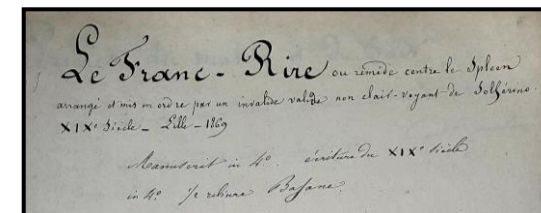 Le Franc-Rire ou remède contre le Spleen
arrangé et mis en ordre par un invalide valide non clair-voyant de Solférino.
XIXe Siècle _ Lille _ 1869
Manuscrit in 4o. écriture du XIXe Siècle
in 4o. 1/2 reliure Basane.